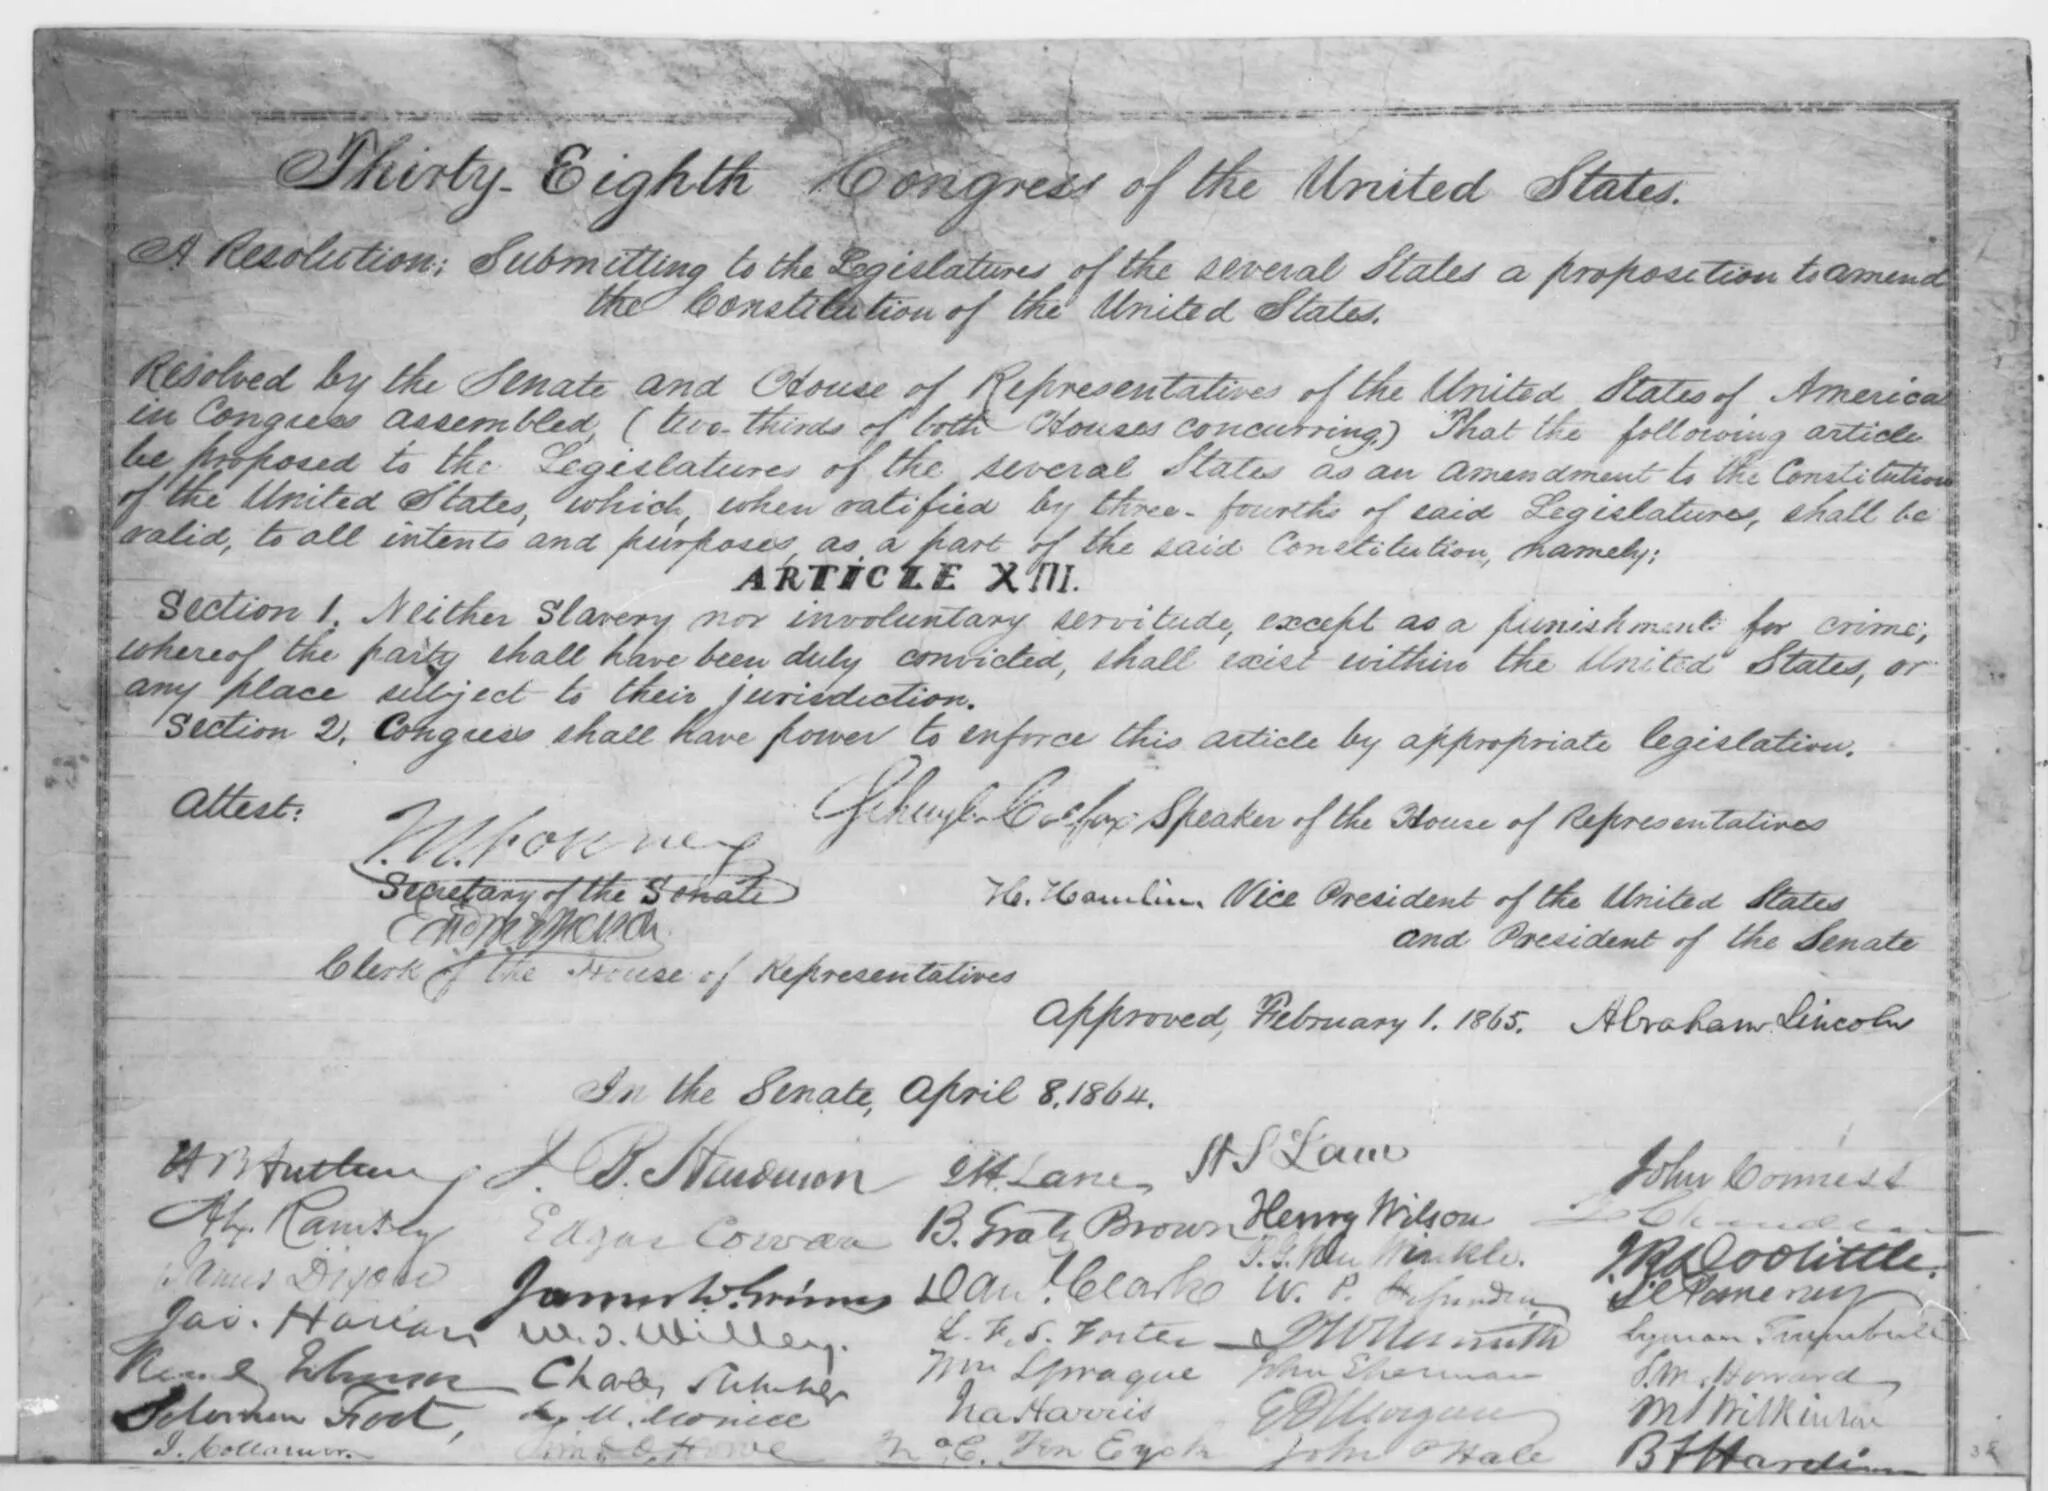 Thirty-Eighth Congress of the United States.
A Resolution: Submitting to the Legislatures of the several States a proposition to amend
the Constitution of the United States.
Resolved by the Senate and House of Representatives of the United States of America
in Congress assembled, (two-thirds of both Houses concurring,) That the following article
be proposed to the Legislatures of the several States as an amendment to the Constitution
of the United States, which, when ratified by three-fourths of said Legislatures, shall be
valid, to all intents and purposes, as a part of the said Constitution, namely:
ARTICLE XIII.
Section 1. Neither Slavery nor involuntary servitude, except as a punishment for crime,
whereof the party shall have been duly convicted, shall exist within the United States, or
any place subject to their jurisdiction.
Section 2. Congress shall have power to enforce this article by appropriate legislation.
Attest:
Schuyler Colfax Speaker of the House of Representatives
J. W. Forney
Secretary of the Senate
H. Hamlin Vice President of the United States
and President of the Senate
Edwd McPherson
Clerk of the House of Representatives
Approved, February 1. 1865. Abraham Lincoln
In the Senate, April 8, 1864.
J. B. Henderson J H Lane H S Lane John Conness
Alex. Ramsey Edgar Cowan B. Gratz Brown Henry Wilson
James Dixon P. G. Van Winkle. J R Doolittle.
James W. Grimes Dan. Clark W. P. Fessenden S C Pomeroy
Jas. Harlan W. T. Willey. L. F. S. Foster J W Nesmith Lyman Trumbull
Charles Sumner Wm Sprague John Sherman J. M. Howard
Solomon Foot, Ira Harris E D Morgan M S Wilkinson
J. Collamer. Timo. O. Howe Ten Eyck John P Hale B F Harding